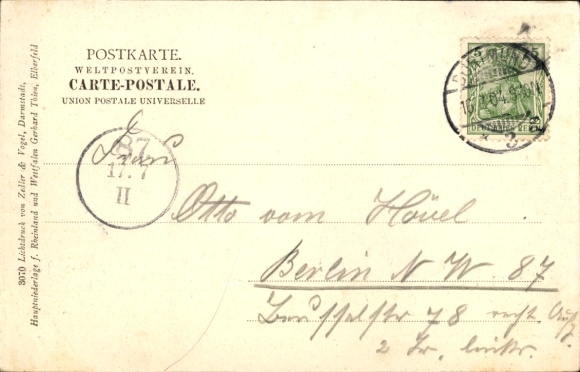 POSTKARTE.
WELTPOSTVEREIN.
CARTE-POSTALE.
UNION POSTALE UNIVERSELLE
DORTMUND
3
DEUTSCHES REICH
87
17.7
II
Frau
Otto vom Hövel
Berlin N W. 87
78 recht. Aufg.
2 Tr. links.
3070 Lichtdruck von Zedler & Vogel, Darmstadt,
Hauptniederlage f. Rheinland und Westfalen Gerhard Thien, Elberfeld